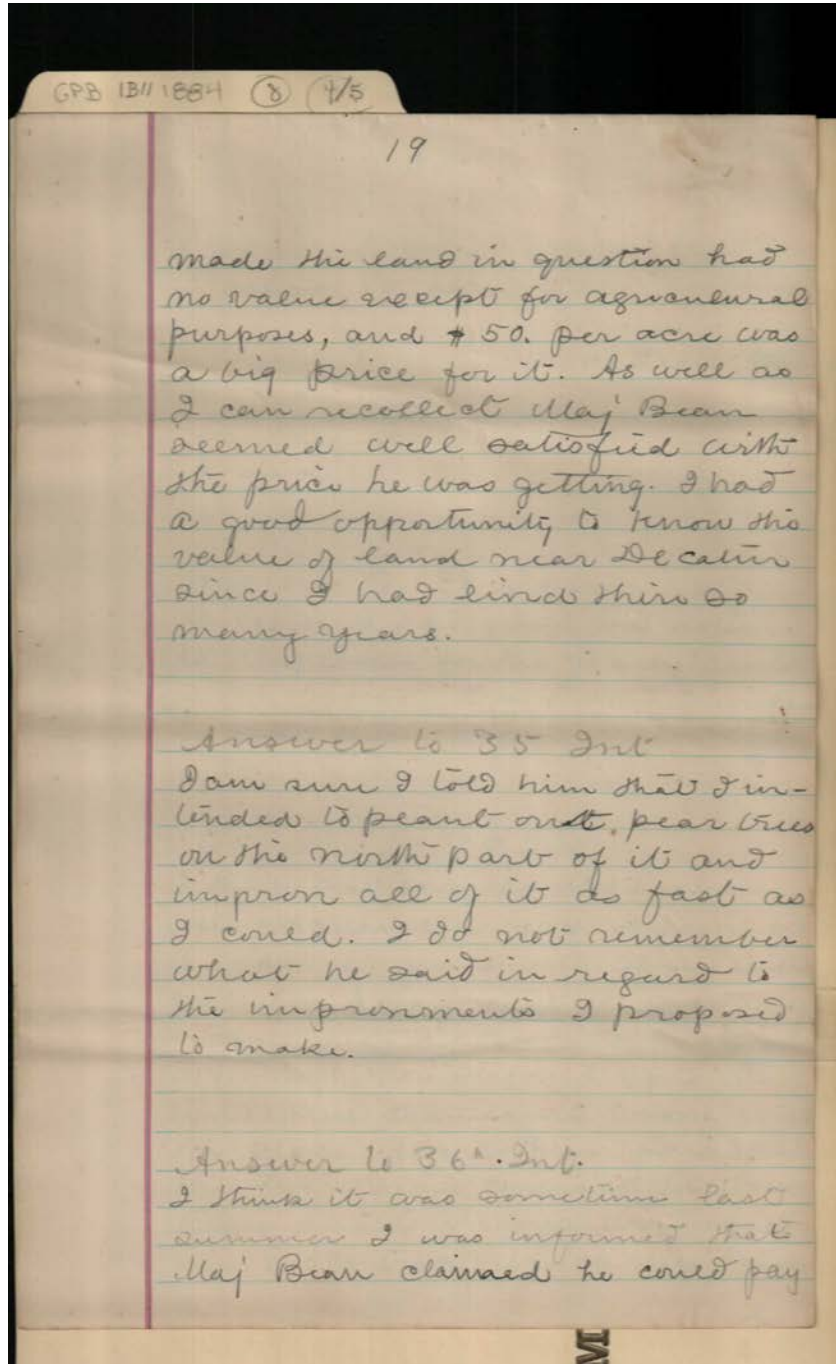 GPB 1B11 1884 8 4/5
19
made the land in question had
no value except for agricultural
purposes, and $50. per acre was
a big price for it. As well as
I can recollect Maj Bean
seemed well satisfied with
the price he was getting. I had
a good opportunity to know the
value of land near Decatur
since I had lived there so
many years.
Answer to 35 Int
I am sure I told him that I in-
tended to plant out pear trees
on the north part of it and
improve all of it as fast as
I could. I do not remember
what he said in regard to
the improvements I proposed
to make.
Answer to 36h. Int.
I think it was sometime last
summer I was informed that
Maj Bean claimed he could pay
M